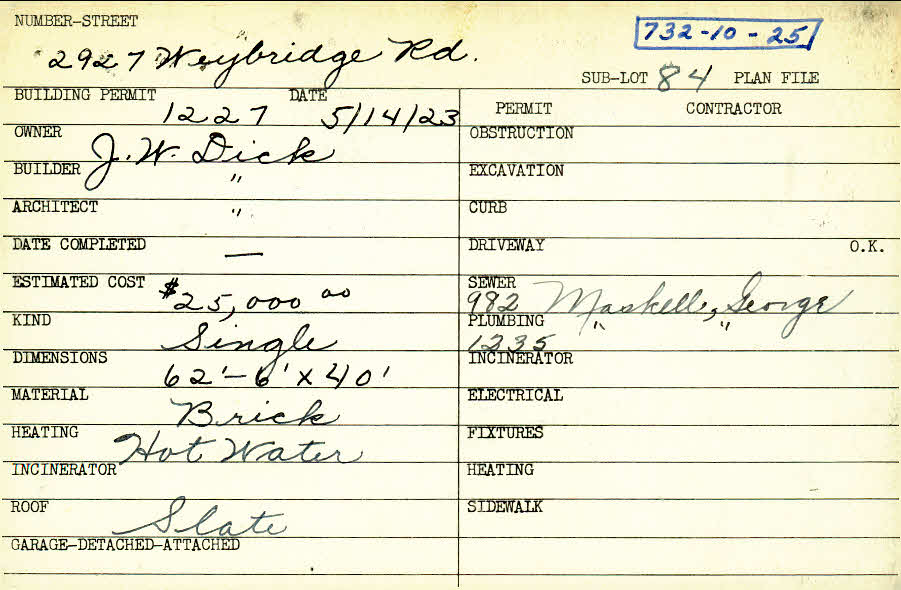 NUMBER-STREET
732-10-25
2927 Weybridge Rd.
SUB-LOT 84 PLAN FILE
BUILDING PERMIT 1227 DATE 5/14/23
PERMIT CONTRACTOR
OWNER J. W. Dick
OBSTRUCTION
BUILDER "
EXCAVATION
ARCHITECT "
CURB
DATE COMPLETED —
DRIVEWAY O.K.
ESTIMATED COST $25,000 00
SEWER 982 Maskell, George
KIND Single
PLUMBING 1235 " "
DIMENSIONS 62'-6' x 40'
INCINERATOR
MATERIAL Brick
ELECTRICAL
HEATING Hot Water
FIXTURES
INCINERATOR
HEATING
ROOF Slate
SIDEWALK
GARAGE-DETACHED-ATTACHED